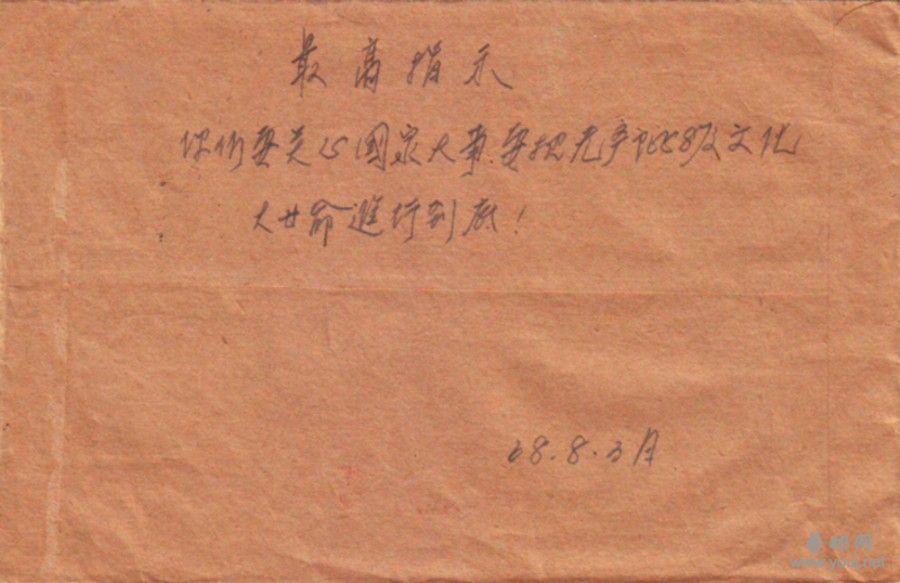 最高指示
你们要关心国家大事,要把无产阶级文化
大廿命進行到底!
68.8.3月
www.yuuj.net